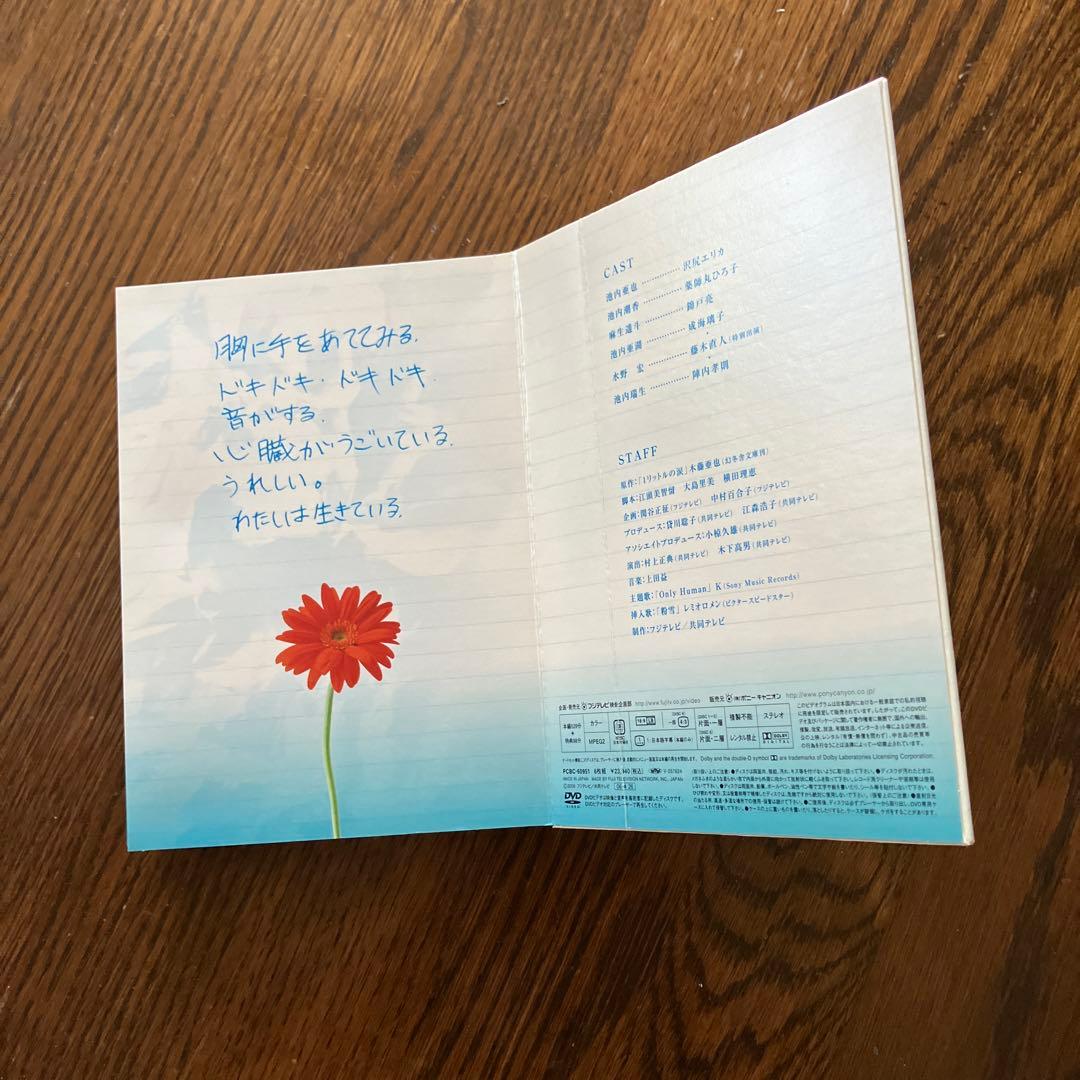 胸に手をあててみる.
ドキドキ・ドキドキ.
音がする.
心臓がうごいている.
うれしい。
わたしは生きている.
CAST
池内亜也 ……………… 沢尻エリカ
池内潮香 ……………… 薬師丸ひろ子
麻生遥斗 ……………… 錦戸亮
池内亜湖 ……………… 成海璃子
水野 宏 ……………… 藤木直人(特別出演)
池内瑞生 ……………… 陣内孝則
STAFF
原作:「1リットルの涙」木藤亜也(幻冬舎文庫刊)
脚本:江頭美智留 大島里美 横田理恵
企画:関谷正征(フジテレビ) 中村百合子(フジテレビ)
プロデュース:貸川聡子(共同テレビ) 江森浩子(共同テレビ)
アソシエイトプロデュース:小椋久雄(共同テレビ)
演出:村上正典(共同テレビ) 木下高男(共同テレビ)
音楽:上田益
主題歌:「Only Human」K(Sony Music Records)
挿入歌:「粉雪」レミオロメン(ビクタースピードスター)
制作:フジテレビ/共同テレビ
企画・発売元 フジテレビ映像企画部 http://www.fujitv.co.jp/video 販売元 (株)ポニーキャニオン http://www.ponycanyon.co.jp/
カラー
MPEG2
16:9
4:3
1:日本語字幕(本編のみ)
片面・一層
片面・二層
複製不能
レンタル禁止
ステレオ
DOLBY DIGITAL
Dolby and the double-D symbol are trademarks of Dolby Laboratories Licensing Corporation.
PCBC-60951 6枚組 ¥23,940(税込)
MADE IN JAPAN
DVD VIDEO
DVDビデオは映像と音声を高密度に記録したディスクです。
DVDビデオ対応のプレーヤーで再生してください。